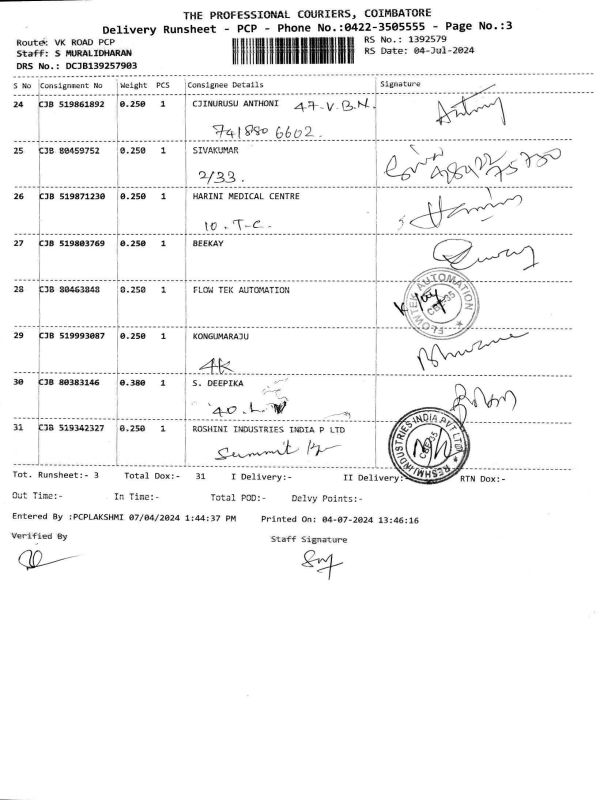 THE PROFESSIONAL COURIERS, COIMBATORE
Delivery Runsheet - PCP - Phone No.:0422-3505555 - Page No.:3
Route: VK ROAD PCP RS No.: 1392579
Staff: S MURALIDHARAN RS Date: 04-Jul-2024
DRS No.: DCJB139257903
S No Consignment No Weight PCS Consignee Details Signature
24 CJB 519861892 0.250 1 CJINURUSU ANTHONI 47-V.B.N.
741880 6602.
25 CJB 80459752 0.250 1 SIVAKUMAR
2/33.
26 CJB 519871230 0.250 1 HARINI MEDICAL CENTRE
10.T-C.
27 CJB 519803769 0.250 1 BEEKAY
28 CJB 80463848 0.250 1 FLOW TEK AUTOMATION
FLOWTEK AUTOMATION
CBE-35
29 CJB 519993087 0.250 1 KONGUMARAJU
4K
30 CJB 80383146 0.380 1 S. DEEPIKA
40.L.
31 CJB 519342327 0.250 1 ROSHINI INDUSTRIES INDIA P LTD
Summit
RESHMI INDUSTRIES INDIA PVT LTD
CBE-35
Tot. Runsheet:- 3 Total Dox:- 31 I Delivery:- II Delivery:- RTN Dox:-
Out Time:- In Time:- Total POD:- Delvy Points:-
Entered By :PCPLAKSHMI 07/04/2024 1:44:37 PM Printed On: 04-07-2024 13:46:16
Verified By Staff Signature